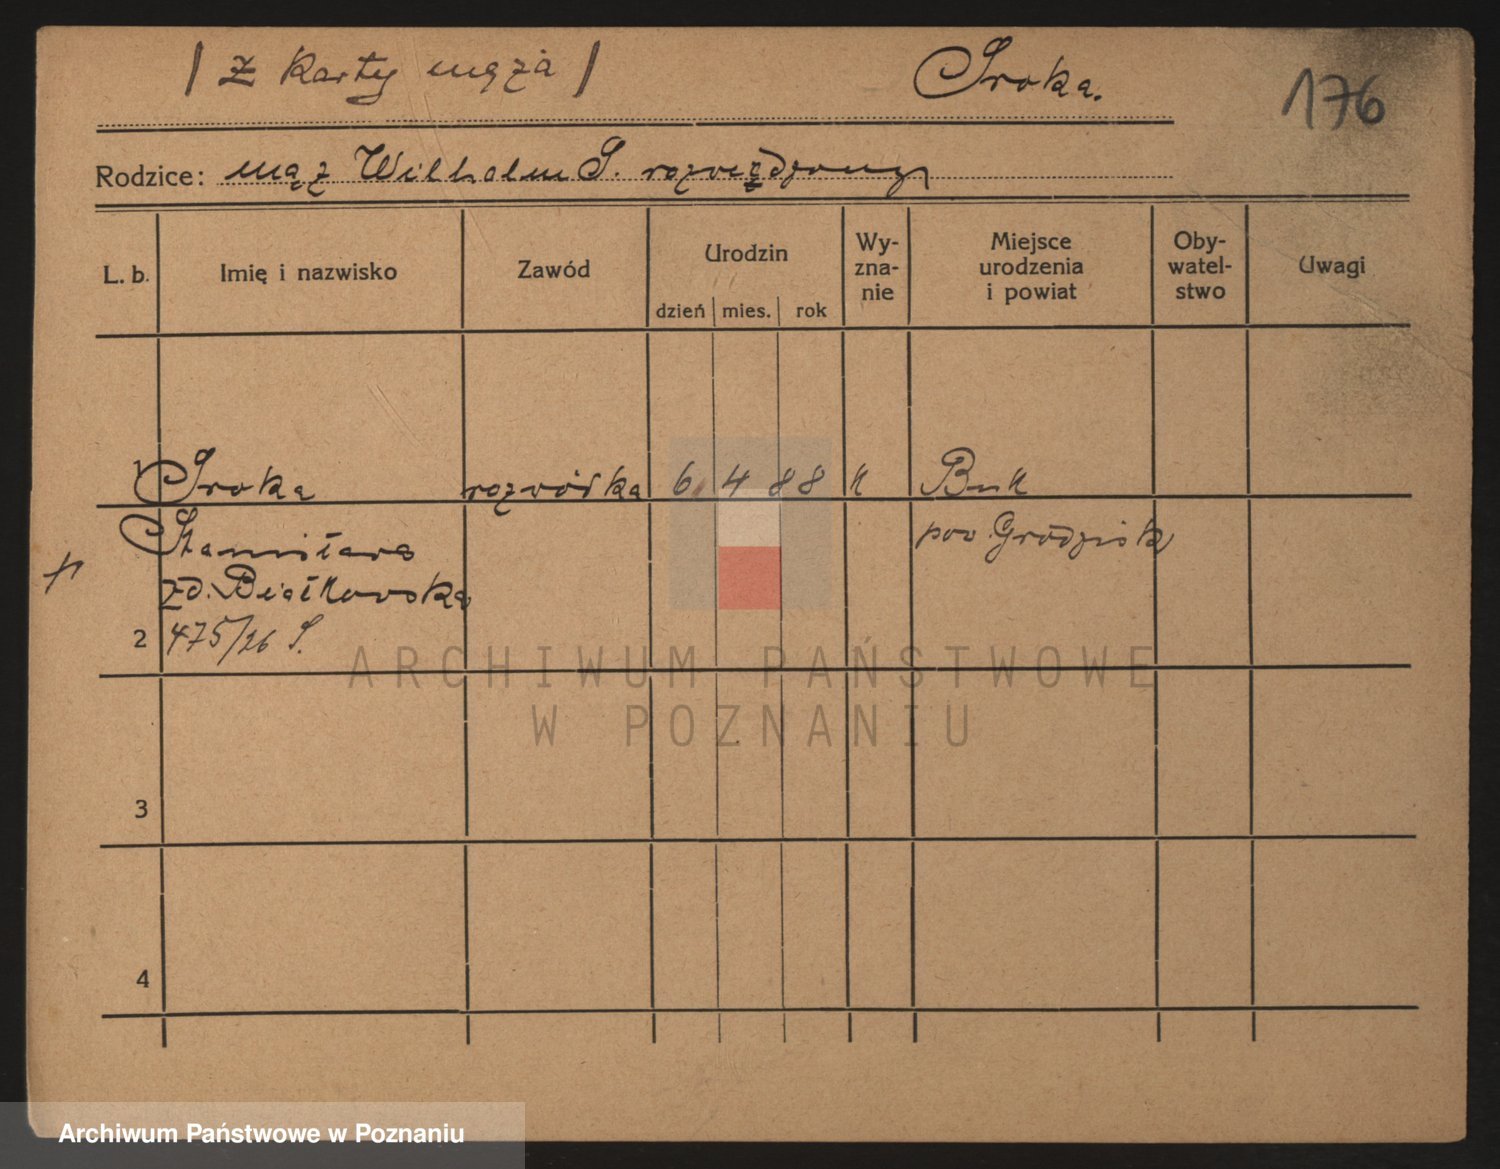 / Z karty męża / Sroka. 176
Rodzice: mąż Wilhelm S. rozwiedziony
L. b. Imię i nazwisko Zawód Urodzin Wy- Miejsce Oby- Uwagi
zna- urodzenia watel-
nie i powiat stwo
dzień mies. rok
1 Sroka rozwódka 6 4 88 k Buk
Stanisława pow. Grodzisk
zd. Białkowska
2 475/26 S.
3
4
ARCHIWUM PAŃSTWOWE
W POZNANIU
Archiwum Państwowe w Poznaniu